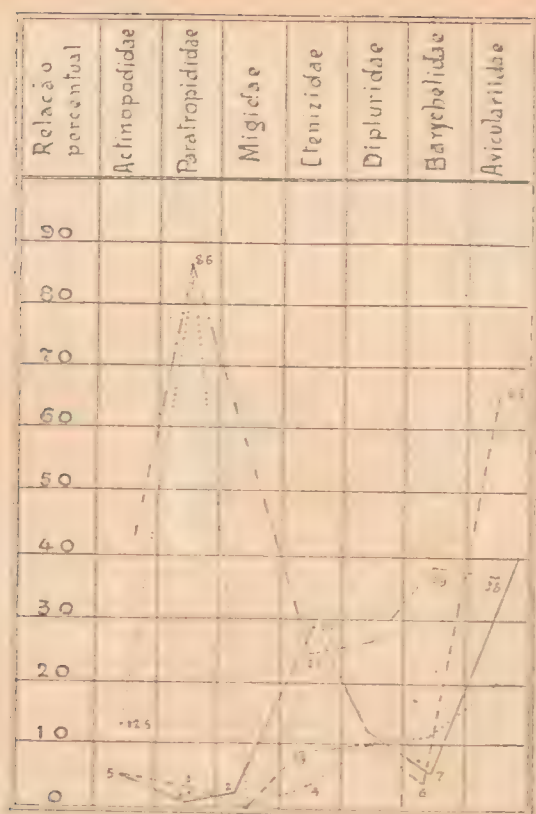 Relacão
porcentual
Actinopodidae
Paratropididae
Migidae
Ctenizidae
Dipluridae
Barychelidae
Aviculariidae
90
80
70
60
50
40
30
20
10
0
86
12.5
5
2
4
6
7